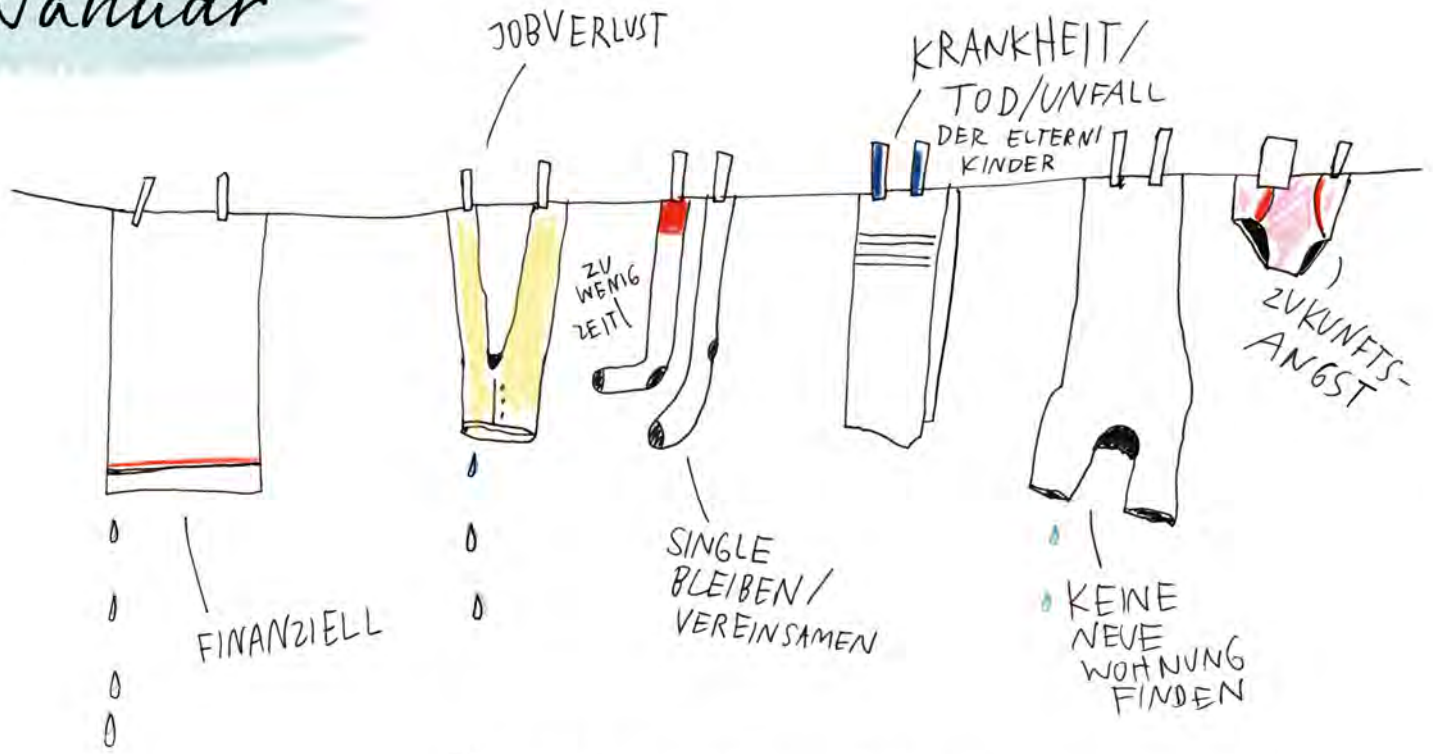 Januar
JOBVERLUST
KRANKHEIT/
TOD/UNFALL
DER ELTERN/
KINDER
ZU
WENIG
ZEIT
ZUKUNFTS-
ANGST
FINANZIELL
SINGLE
BLEIBEN/
VEREINSAMEN
KEINE
NEUE
WOHNUNG
FINDEN